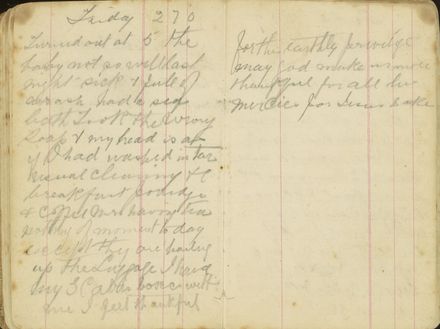 Friday 270
Turned out at 5 the
baby not so well last
night sick & full of
a rash had a sea
bath Took the wrong
soap & my head is as
if I had washed in tar
usual cleaning & C
breakfast porridge
& Coffee
worthy of moment to day
except they are having
up the Luggage I have
my 3 Cabin boxes with
me I feel thankful
for the earthly
may God make us more
thankful for all his
mercies for Jesus sake